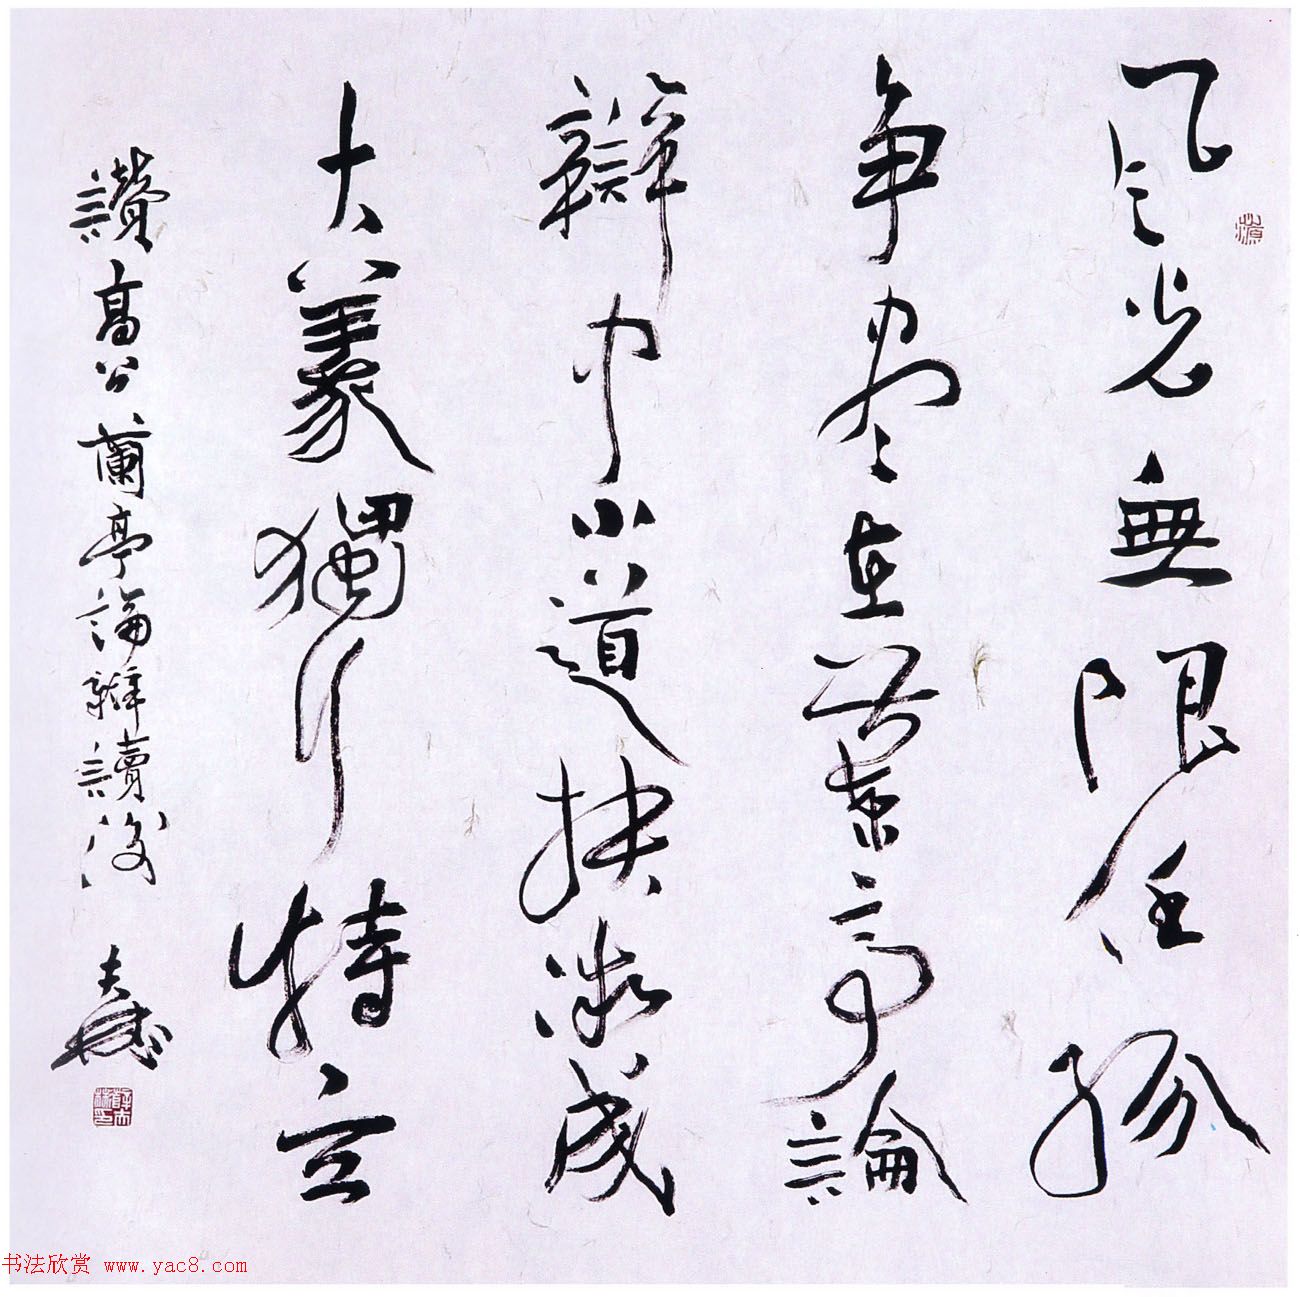 風光無限任紛
争尽在蘭亭論
辯中小道抉微成
大義獨行特立
讚高公蘭亭論辯讀後
书法欣赏 www.yac8.com